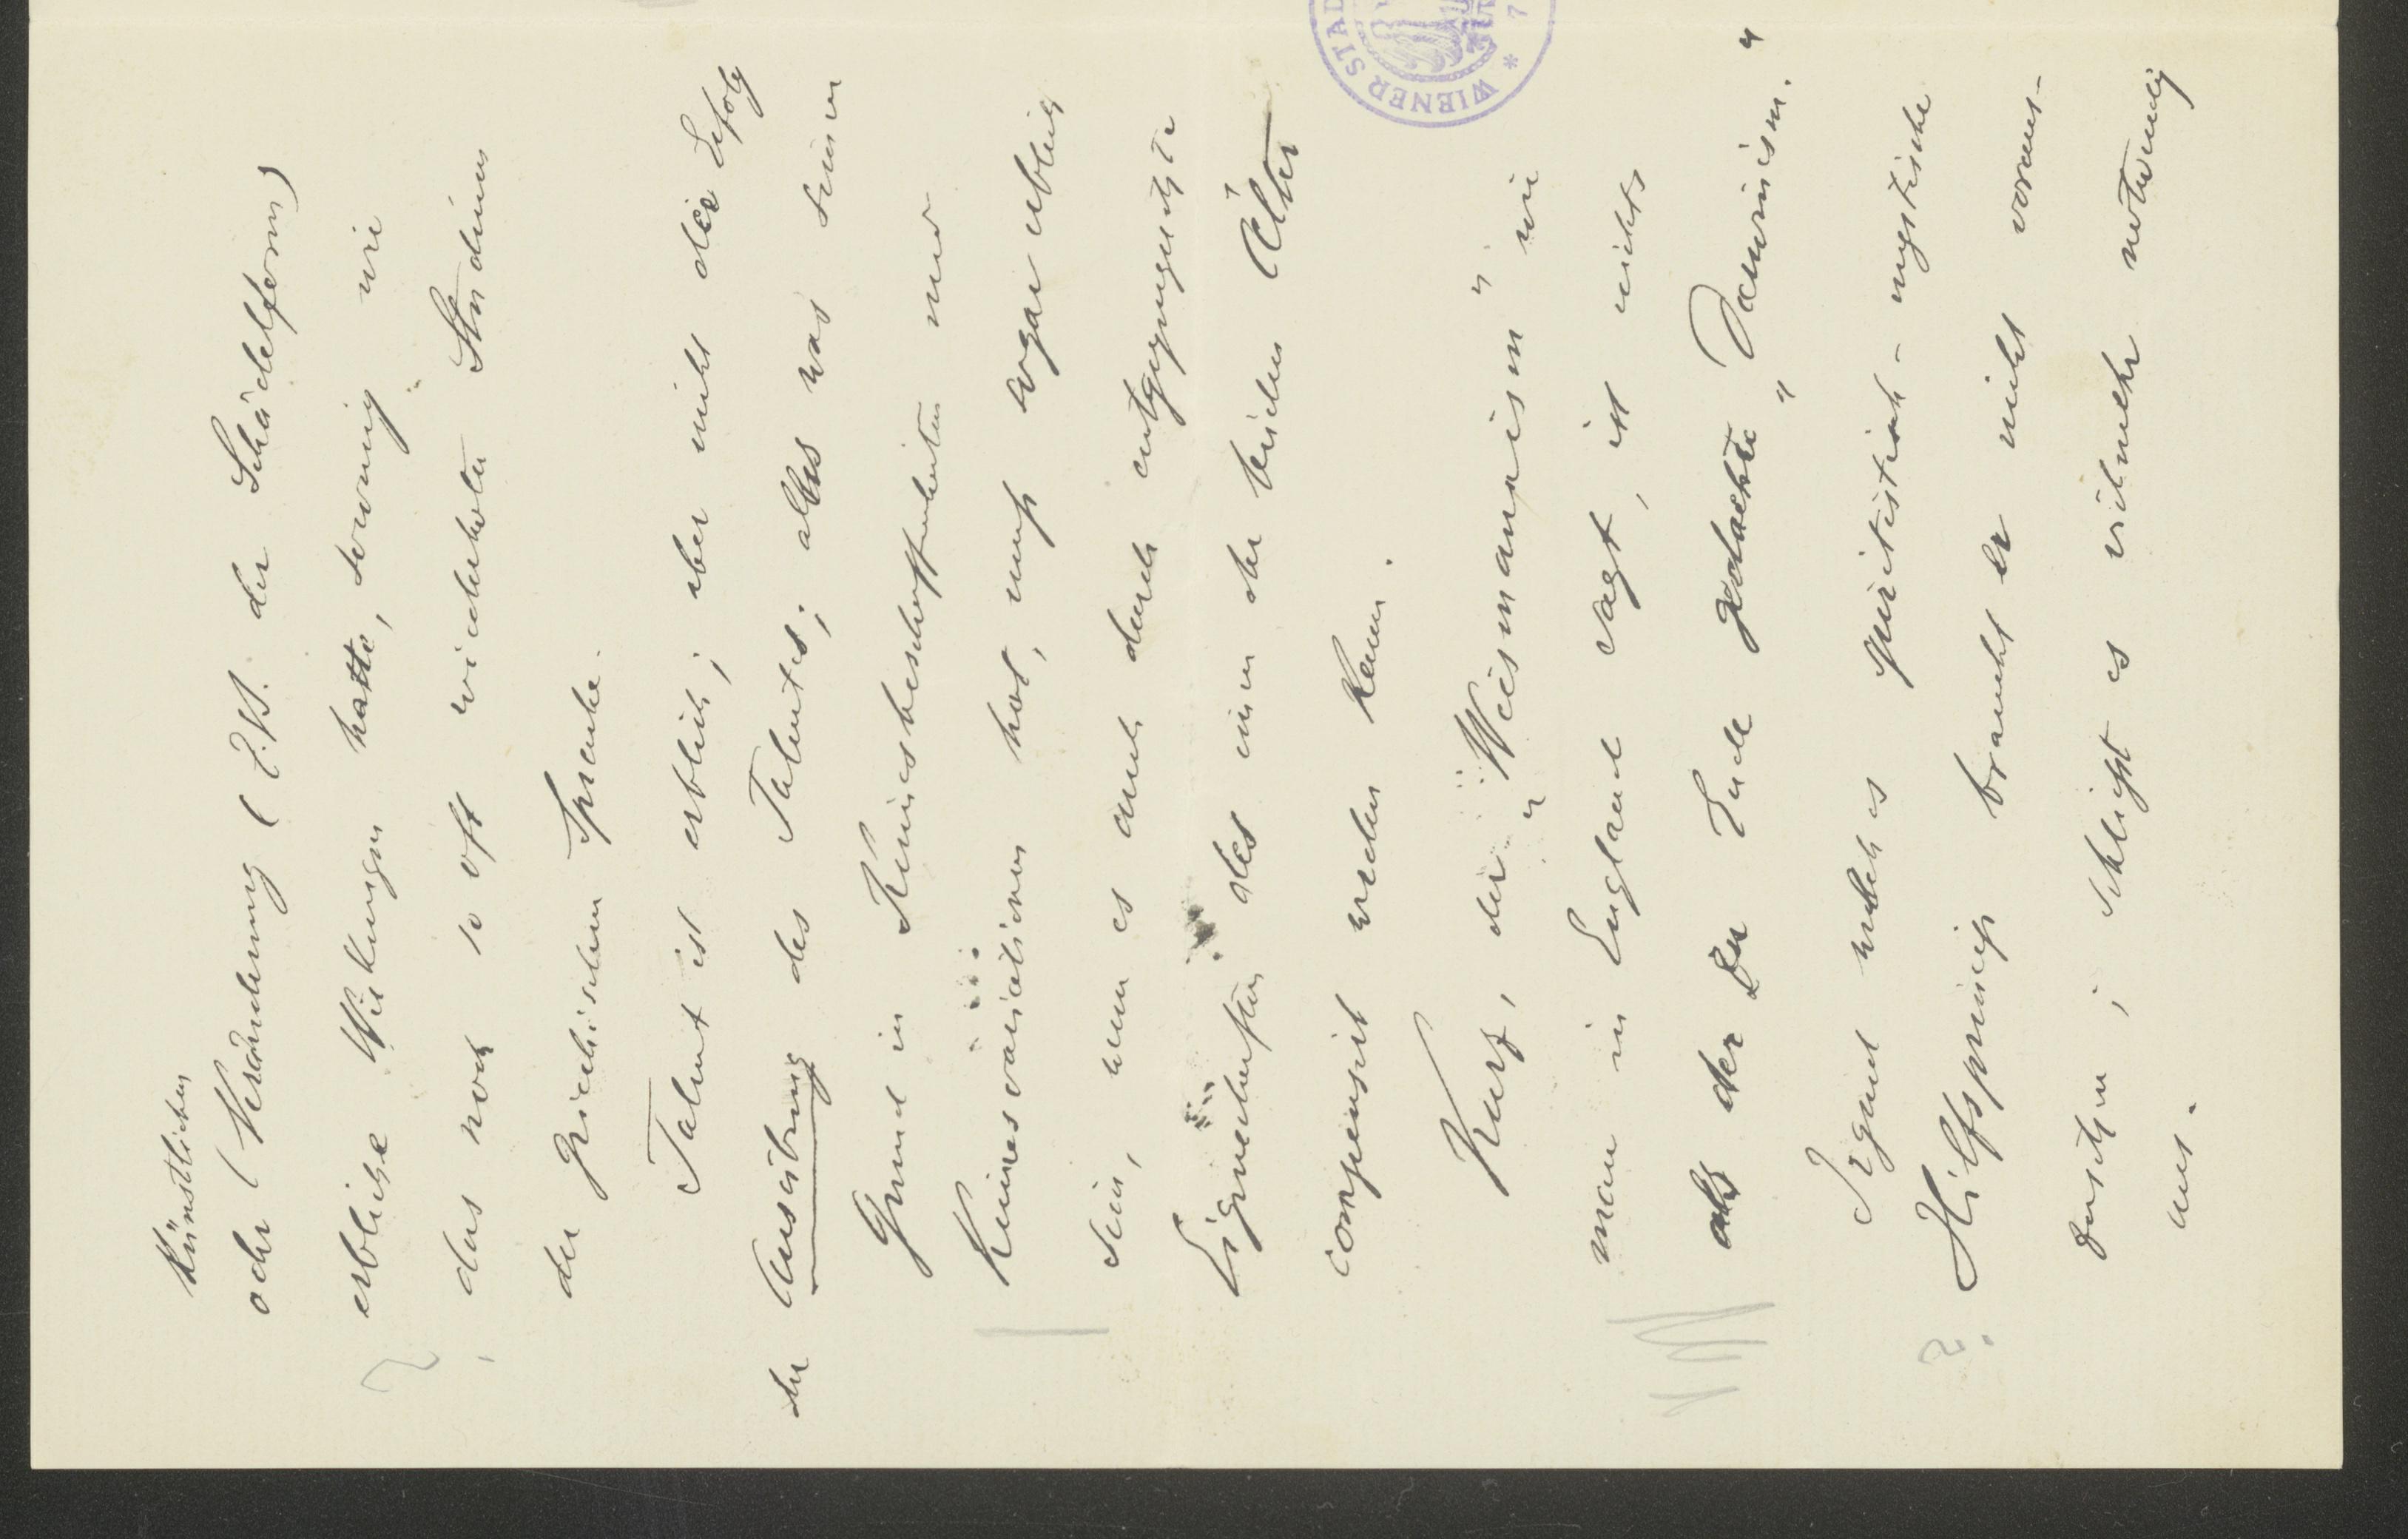 künstlichen
oder (Veränderung (z.B. der Schädelform)
erbliche Wirkungen hatte, sowenig wie
das noch so oft wiederholte Studium
der griechischen Sprache.
Talent ist erblich; aber nicht der Erfolg
der Ausübung des Talentes; alles was seinen
Grund in Keimesbeschaffenheiten und
Keimesvariationen hat, muss sogar erblich
sein, wenn es auch durch entgegengesetzte
Eigenschaften des einen der beiden Ältern
compensirt werden kann.
Kurz, der „Weismannism" wie
man in England sagt, ist nichts
als der zu Ende gedachte „Darwinism."
Irgend welches spiritistisch-mystische
Hilfsprincip braucht er nicht voraus-
zusetzen; schliesst es vielmehr notwendig
aus.
WIENER STAD
* 7